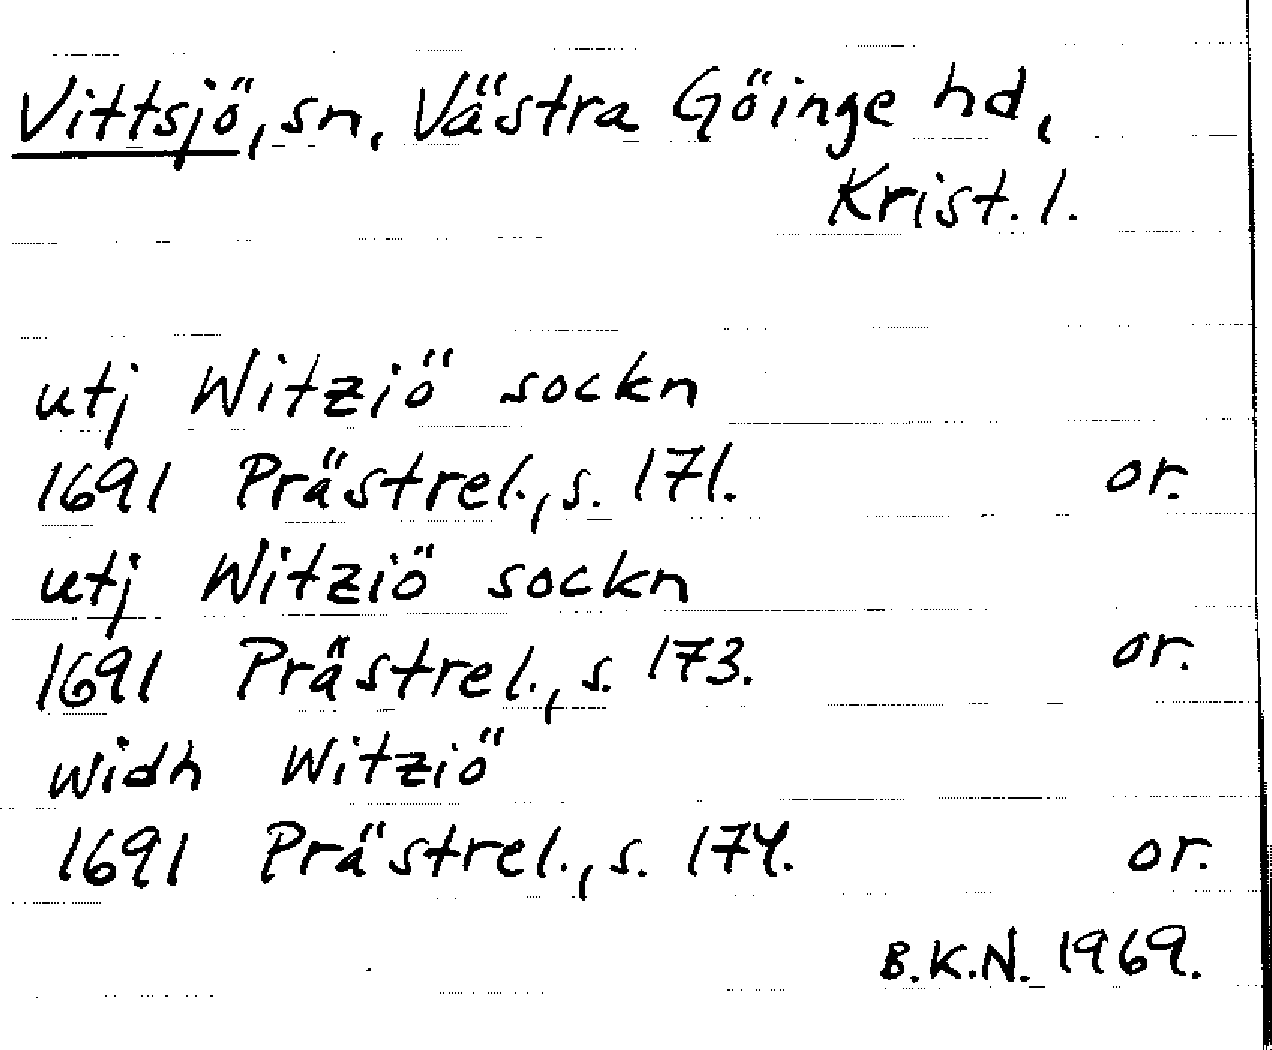 Vittsjö, sn, Västra Göinge hd,
Krist. l.
utj Witziö sockn
1691 Prästrel., s. 171. or.
utj Witziö sockn
1691 Prästrel., s. 173. or.
widh Witziö
1691 Prästrel., s. 174. or.
B.K.N. 1969.